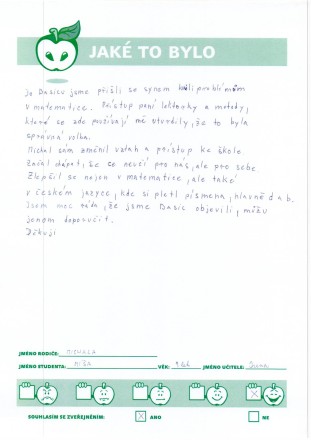 JAKÉ TO BYLO
Do Basicu jsme přišli se synem kvůli problémům
v matematice. Přístup paní lektorky a metody,
které se zde používají mě utvrdily, že to byla
správná volba.
Michal sám změnil vztah a přístup ke škole.
Začal chápat, že se neučí pro nás, ale pro sebe.
Zlepšil se nejen v matematice, ale také
v českém jazyce, kde si pletl písmena, hlavně d a b.
Jsem moc ráda, že jsme Basic objevili, můžu
jenom doporučit.
Děkuji
JMÉNO RODIČE: MICHALA
JMÉNO STUDENTA: MÍŠA VĚK: JMÉNO UČITELE: Jana
SOUHLASÍM SE ZVEŘEJNĚNÍM: X ANO NE